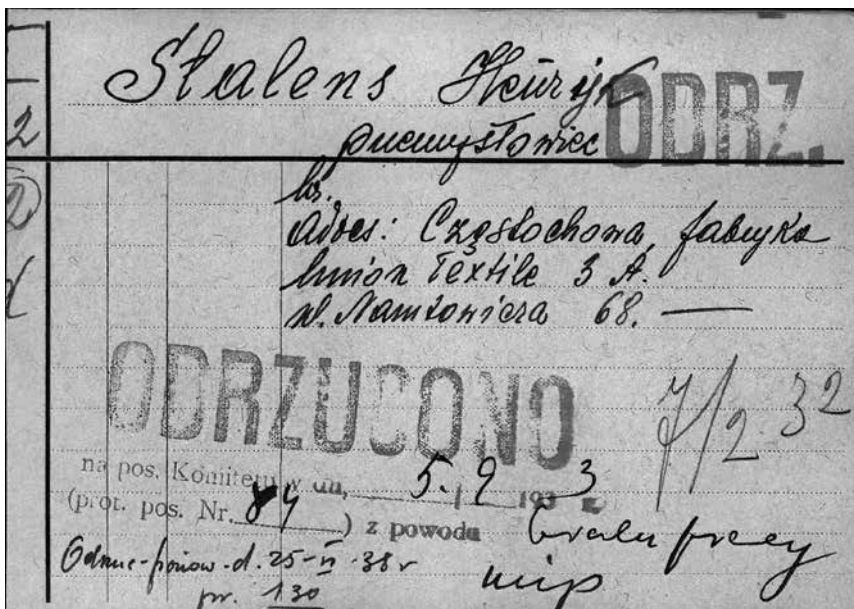 Stalens Henryk
ODRZ.
przemysłowiec
Adres: Częstochowa, fabryka
Union Textile S A.
ul. Narutowicza 68. —
ODRZUCONO
7/2 32
na pos. Komitetu w dn, 5. 2 193 3 r.
(prot. pos. Nr. 84) z powodu braku pracy
niep
d. 25-II-38 r
pr. 130
2
2